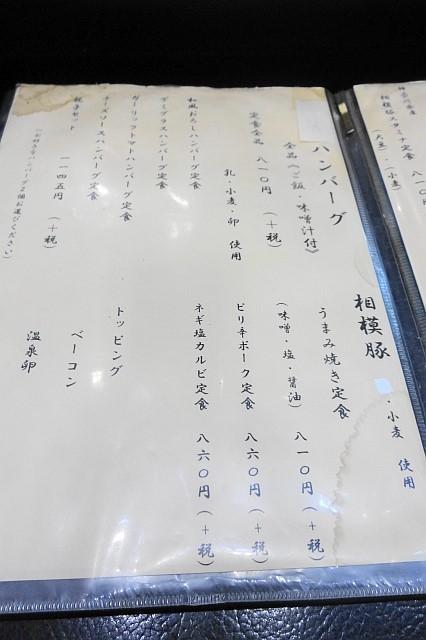 神奈川県産
相模豚スタミナ定食
(大豆)・小麦)
ハンバーグ
全品《ご飯・味噌汁付》
定食全品 八一〇円 (+税)
乳・小麦・卵 使用
和風おろしハンバーグ定食
デミグラスハンバーグ定食
ガーリックトマトハンバーグ定食
チーズソースハンバーグ定食
親子セット 一一四五円 (+税)
(お好きなハンバーグ2個お選びください)
相模豚
・小麦 使用
うまみ焼き定食 八一〇円 (+税)
(味噌・塩・醤油)
ピリ辛ポーク定食 八六〇円 (+税)
ネギ塩カルビ定食 八六〇円 (+税)
トッピング
ベーコン
温泉卵